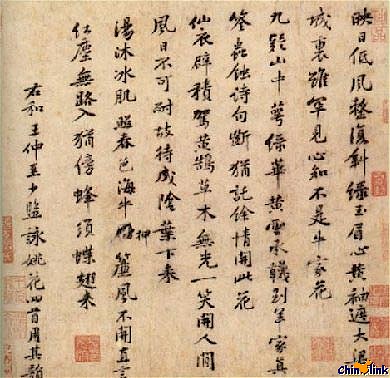 映日低風整復斜綠玉眉心黃袖遮大梁
城裏雖罕見心知不是牛家花
九疑山中萼綠華黃雲承襪到羊家真
筌蟲蝕詩句斷猶託餘情開此花
仙衣襞積駕黃鵠草木無光一笑開人間
風日不可耐故待成陰葉下來
湯沐冰肌照春色海牛押簾風不開直言
紅塵無路入猶傍蜂鬚蝶翅來
右和王仲至少監詠姚花四首用其韻